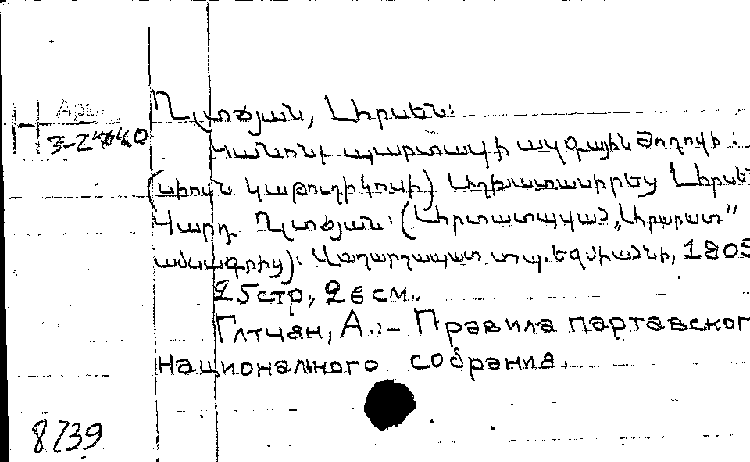 Арм.
3-24640
Ղլտճյան, Արսեն:
Կանոնք պարտավի ազգային ժողովի:
(սիոն կաթողիկոսի) Աշխատասիրեց Արսեն
Վարդ. Ղլտճյան: (Արտատպված „Արարատ"
ամսագրից): Վաղարշապատ տպ. Էջմիածնի, 1905
25стр, 26 см.
Глтчан, А.:– Правила партавског
национального собрания.
8739